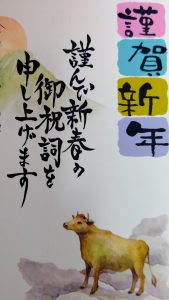 謹賀新年
謹んで新春の
御祝詞を
申し上げます